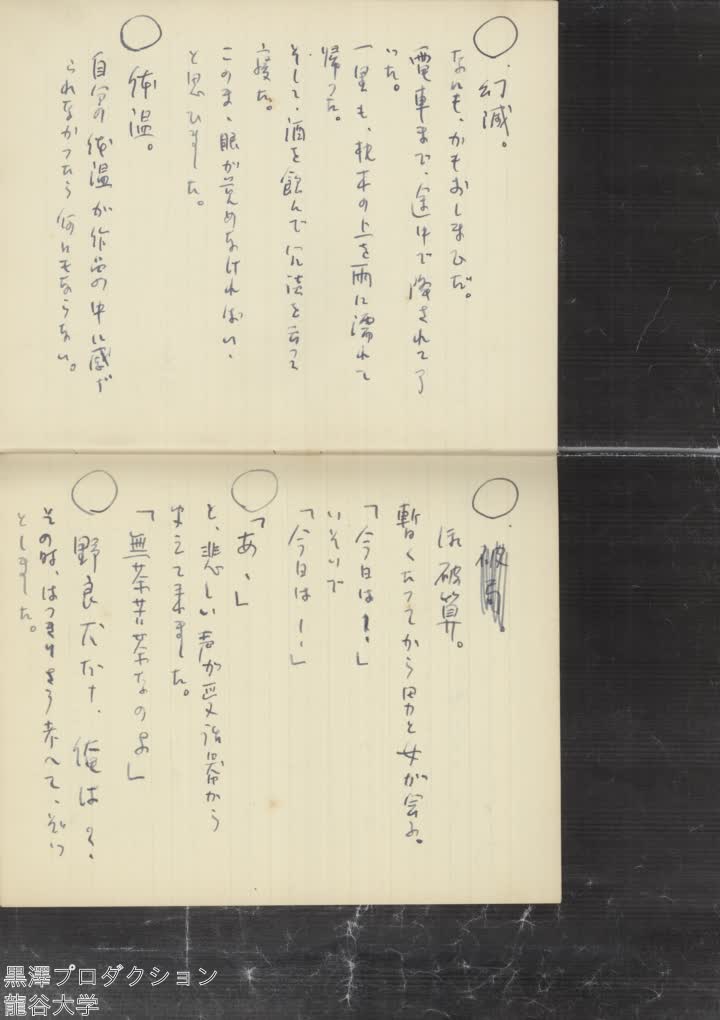 ○幻滅。
なにも、かもおしまひだ。
電車まで、途中で降されて了
った。
一里も、枕木の上を雨に濡れて
帰った。
そして、酒を飲んで冗談を云って
寝た。
このまゝ眼が覚めなければいゝ
と思ひました。
○体温。
自分の体温が作品の中に感ぜ
られなかったら何にもならない。
○破局。
破算。
暫くたってから男と女が会ふ。
「今日は!」
いそいで
「今日は!」
○「あゝ」
と、悲しい声が受話器から
きこえて来ました。
「無茶苦茶なのよ」
○野良犬だナ、俺は
その時、はっきりさう考へて、ぞっ
としました。
黒澤プロダクション
龍谷大学